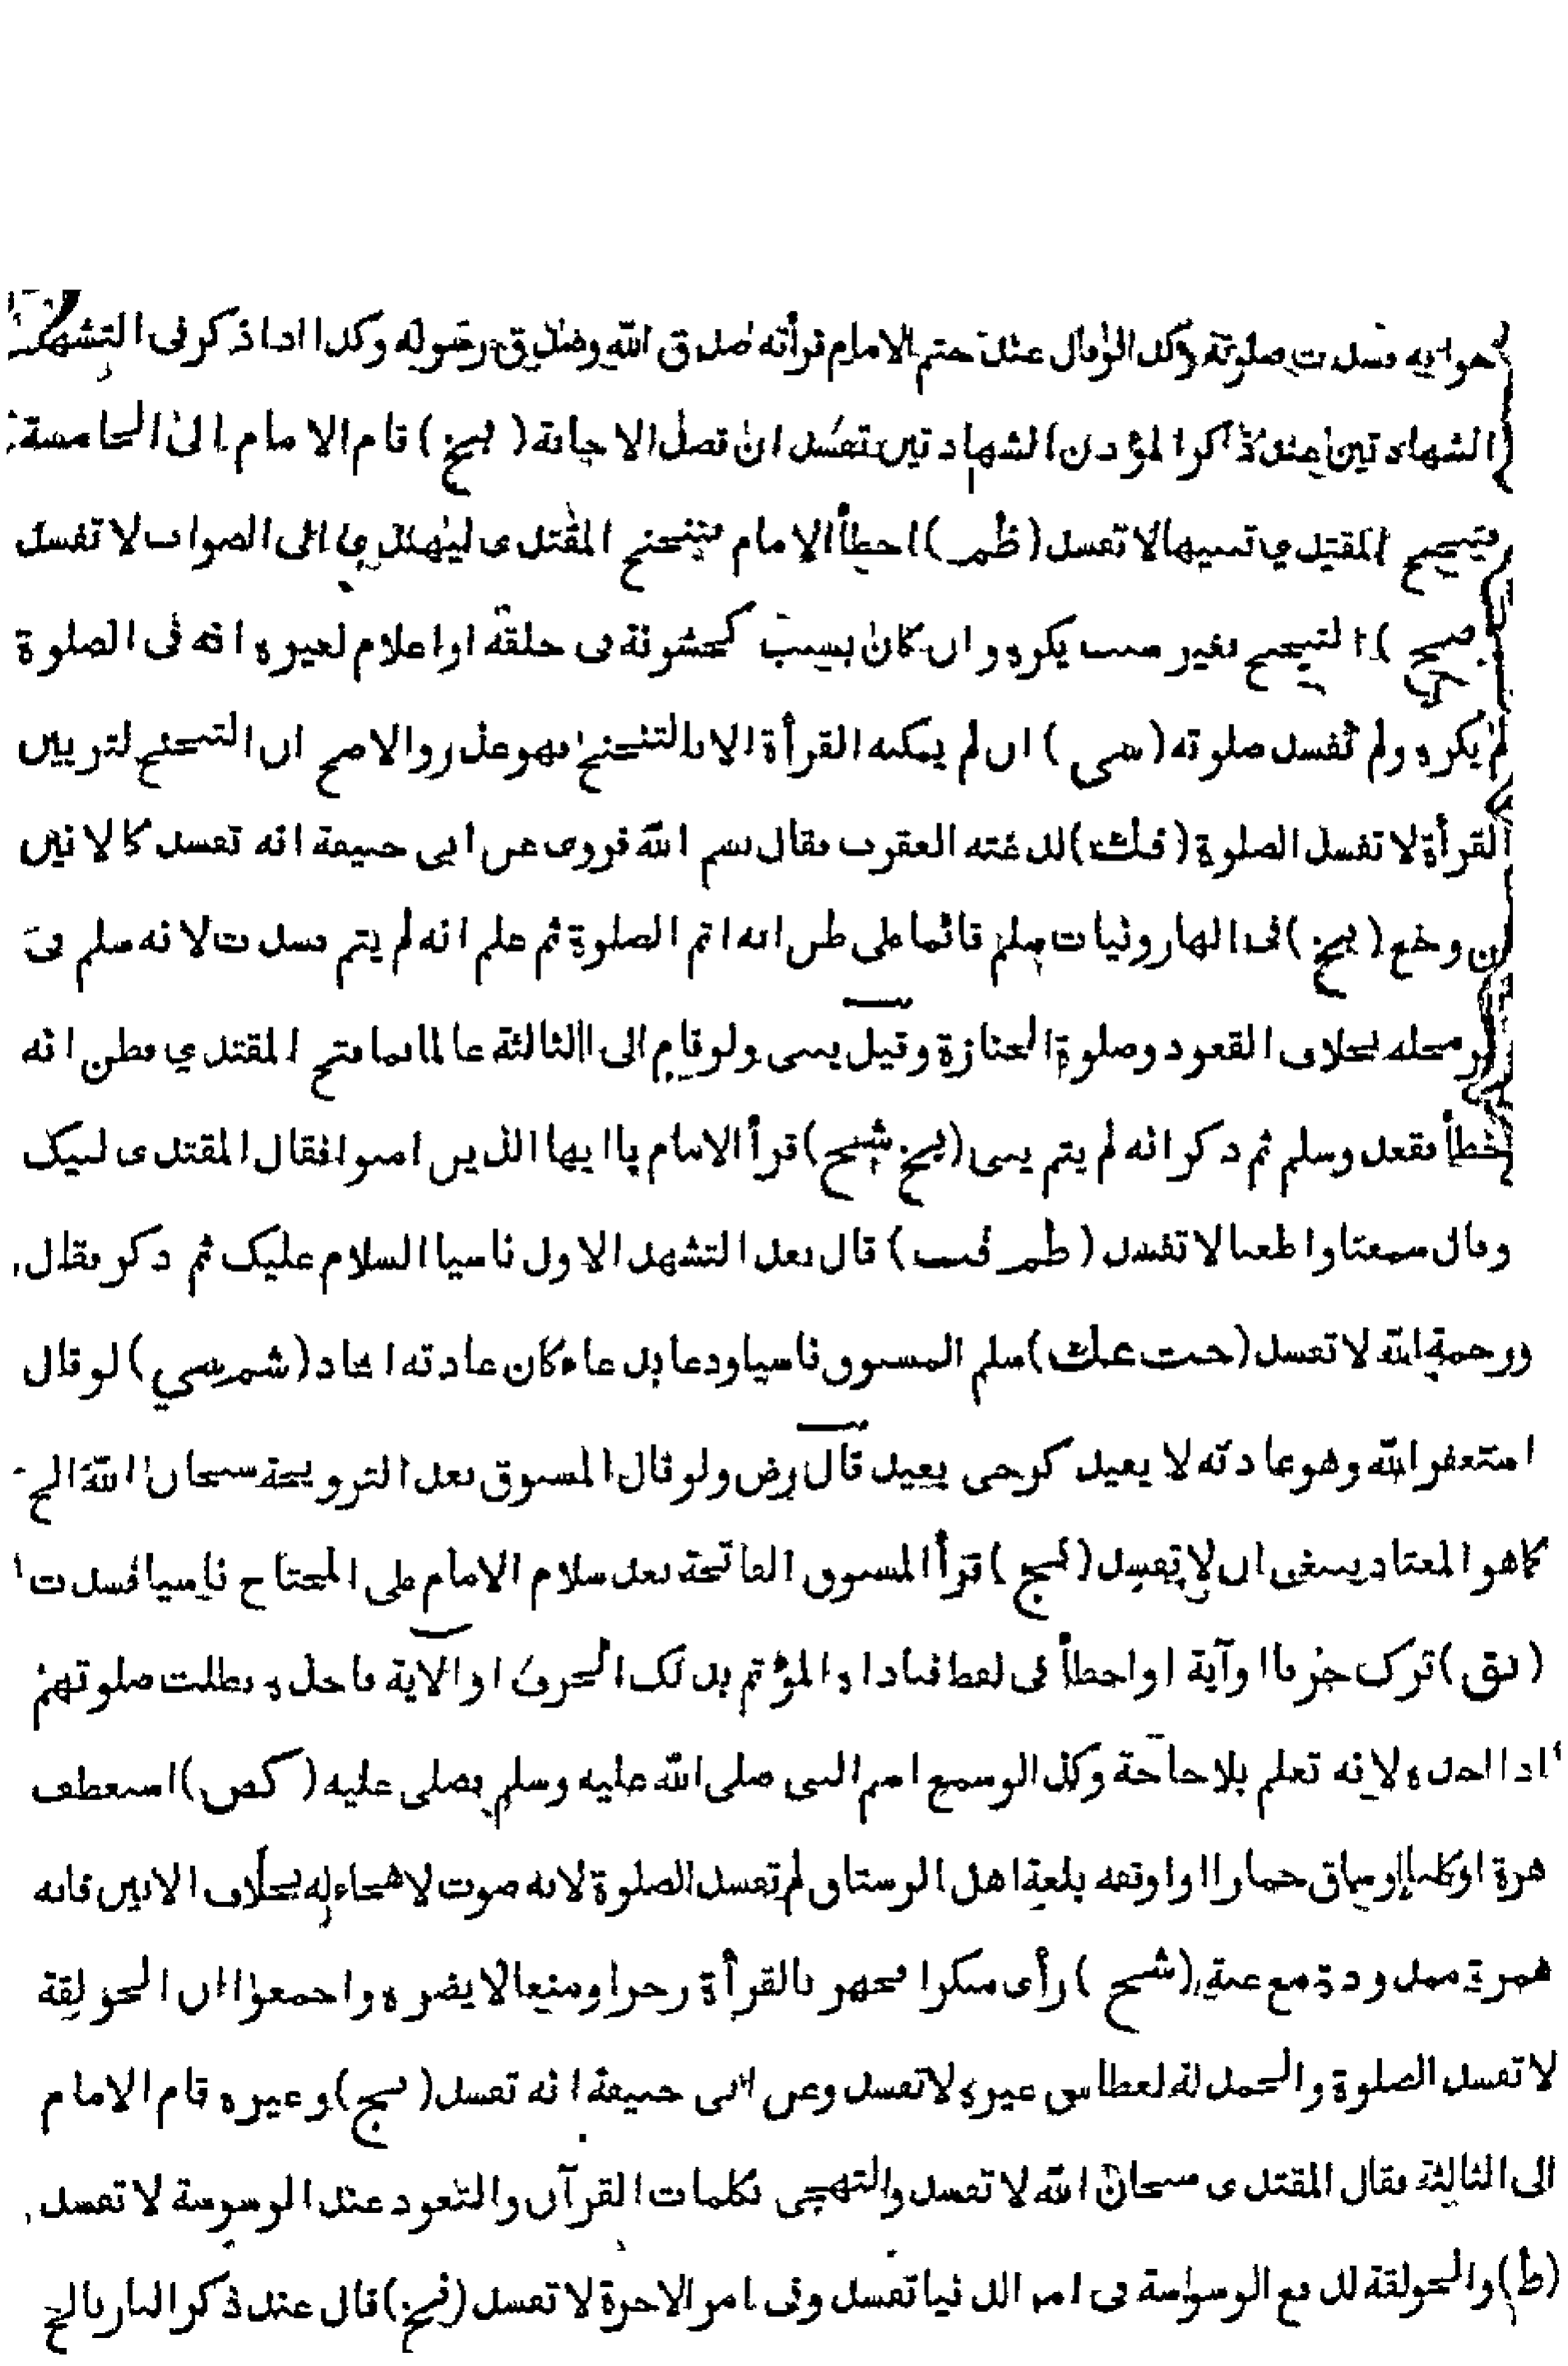 جوابه فسدت صلوته وكذا لو قال عند ختم الامام قرأته صدق الله وصدق رسوله وكذا اذا ذكر فى التشهد
الشهادتين عند ذكر المؤذن الشهادتين تفسد ان قصد الاجابة (بخ) قام الامام الى الخامسة
فتنحنح المقتدي تنبيها لا تفسد (ظم) اخطأ الامام فتنحنح المقتدى ليهتدي الى الصواب لا تفسد
التنحنح بغير سبب يكره وان كان بسبب كخشونة فى حلقه او اعلام لغيره انه فى الصلوة
لم يكره ولم تفسد صلوته (سى) ان لم يمكنه القرأة الا بالتنحنح فهو عذر والاصح ان التنحنح لتزيين
القرأة لا تفسد الصلوة (فك) لدغته العقرب فقال بسم الله فروى عن ابى حنيفة انه تفسد كالانين
من وجع (بخ) فى الهارونيات سلم قائما على ظن انه اتم الصلوة ثم علم انه لم يتم فسدت لانه سلم فى
غير محله بخلاف القعود وصلوة الجنازة وقيل يبنى ولو قام الى الثالثة عالما بها فتح المقتدي فظن انه
اخطأ فقعد وسلم ثم ذكر انه لم يتم يبنى (بخ شح) قرأ الامام يا ايها الذين امنوا فقال المقتدى لبيك
وقال سمعنا واطعنا لا تفسد (ظم فت) قال بعد التشهد الاول ناسيا السلام عليك ثم ذكر فقال
ورحمة الله لا تفسد (حت عك) سلم المسبوق ناسيا ودعا بدعاء كان عادته اعاد (شم سي) لو قال
استغفر الله وهو عادته لا يعيد كرخى يعيد قال رض ولو قال المسبوق بعد الترويحة سبحان الله الخ
كما هو المعتاد ينبغى ان لا تفسد (بج) قرأ المسبوق الفاتحة بعد سلام الامام على المحتاج ناسيا فسدت
(نق) ترك حرفا او آية او اخطأ فى لفظ فناداه المؤتم بذلك الحرف او الآية فاخذه بطلت صلوتهم
اذا اخذه لانه تعلم بلا حاجة وكذا لو سمع اسم النبى صلى الله عليه وسلم فصلى عليه (كص) استعطف
هرة او كلبا او ساق حمارا او اوقفه بلغة اهل الرستاق لم تفسد الصلوة لانه صوت لا هجاء له بخلاف الانين فانه
همزة ممدودة مع غنة (شح) رأى منكرا فجهر بالقرأة زجرا ومنعا لا يضره واجمعوا ان الحولقة
لا تفسد الصلوة والحمدلة لعطاس غيره لا تفسد وعن ابى حنيفة انه تفسد (بج) وغيره قام الامام
الى الثالثة فقال المقتدى سبحان الله لا تفسد والتهجى بكلمات القرآن والتعوذ عند الوسوسة لا تفسد
(ط) والحولقة لدفع الوسوسة فى امر الدنيا تفسد وفى امر الاخرة لا تفسد (فخ) قال عند ذكر النار بالخ